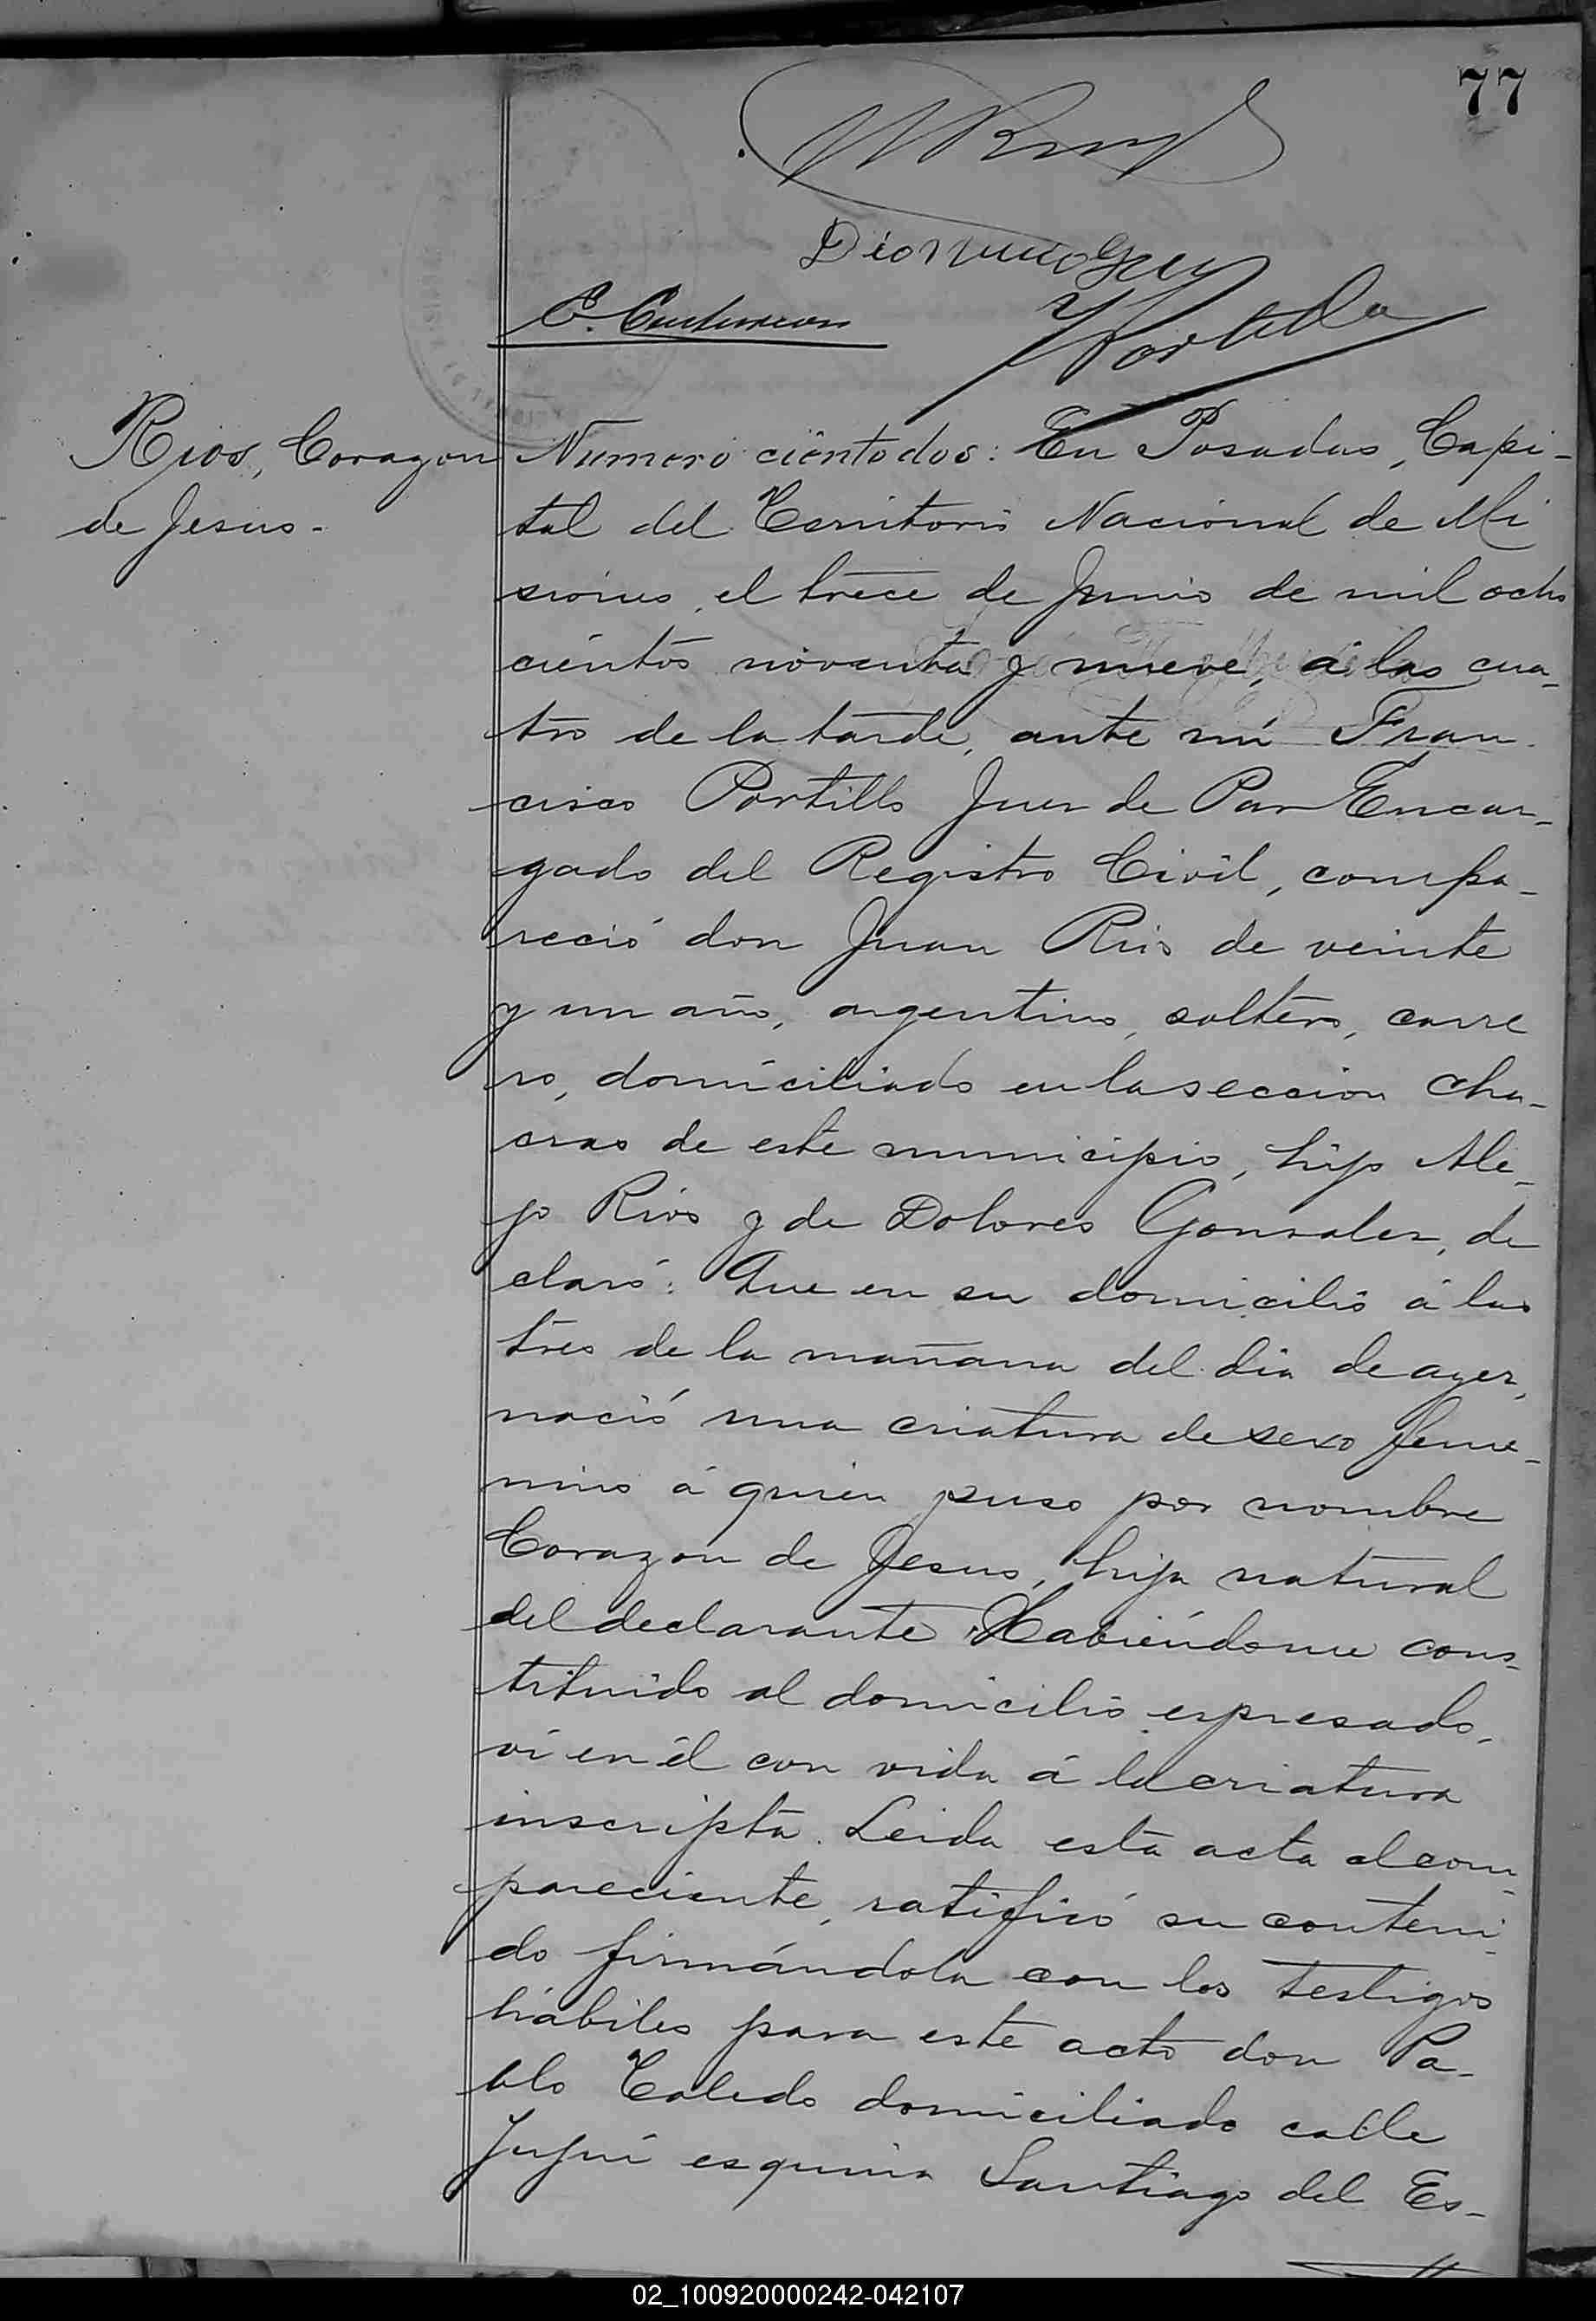 77
E.
Portillo
Rios, Corazon
de Jesus.
Numero ciento dos: En Posadas, Capi-
tal del Territorio Nacional de Mi
siones, el trece de Junio de mil ocho
cientos noventa y nueve, á las cua-
tro de la tarde, ante mí Fran
cisco Portillo Juez de Paz Encar-
gado del Registro Civil, compa-
reció don Juan Rios de veinte
y un año, argentino, soltero, carre
ro, domiciliado en la seccion cha-
cras de este municipio, hijo Ale-
jo Rios y de Dolores Gonzalez, de
claró: Que en su domicilio á las
tres de la mañana del dia de ayer,
nació una criatura de sexo feme-
nino á quien puso por nombre
Corazon de Jesus, hija natural
del declarante. Habiéndome cons-
tituido al domicilio espresado,
ví en él con vida á la criatura
inscripta. Leida esta acta al com-
pareciente, ratificó su conteni-
do firmándola con los testigos
hábiles para este acto don Pa-
blo Toledo domiciliado calle
Jujuí esquina Santiago del Es-
02_100920000242-042107